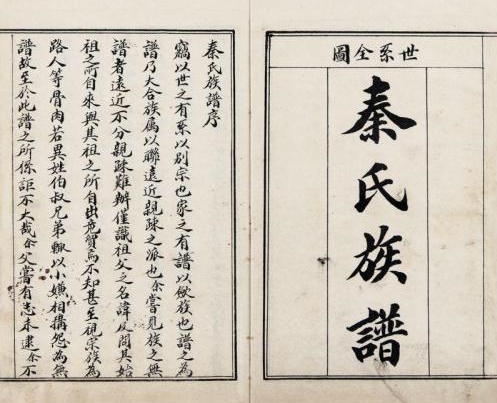 世系全圖
秦氏族譜
秦氏族譜序
竊以世之有系以别宗也家之有譜以歛族也譜之為
譜乃大合族属以聯遠近親疎之派也余嘗見族之無
譜者遠近不分親疎難辦僅識祖父之名諱及問其始
祖之所自來與其祖之所自出竟貿焉不知甚至視宗族為
路人等骨肉若異姓伯叔兄弟輙以小嫌相搆怨為無
譜故至於此譜之所係詎不大哉余父嘗有志未逮余不